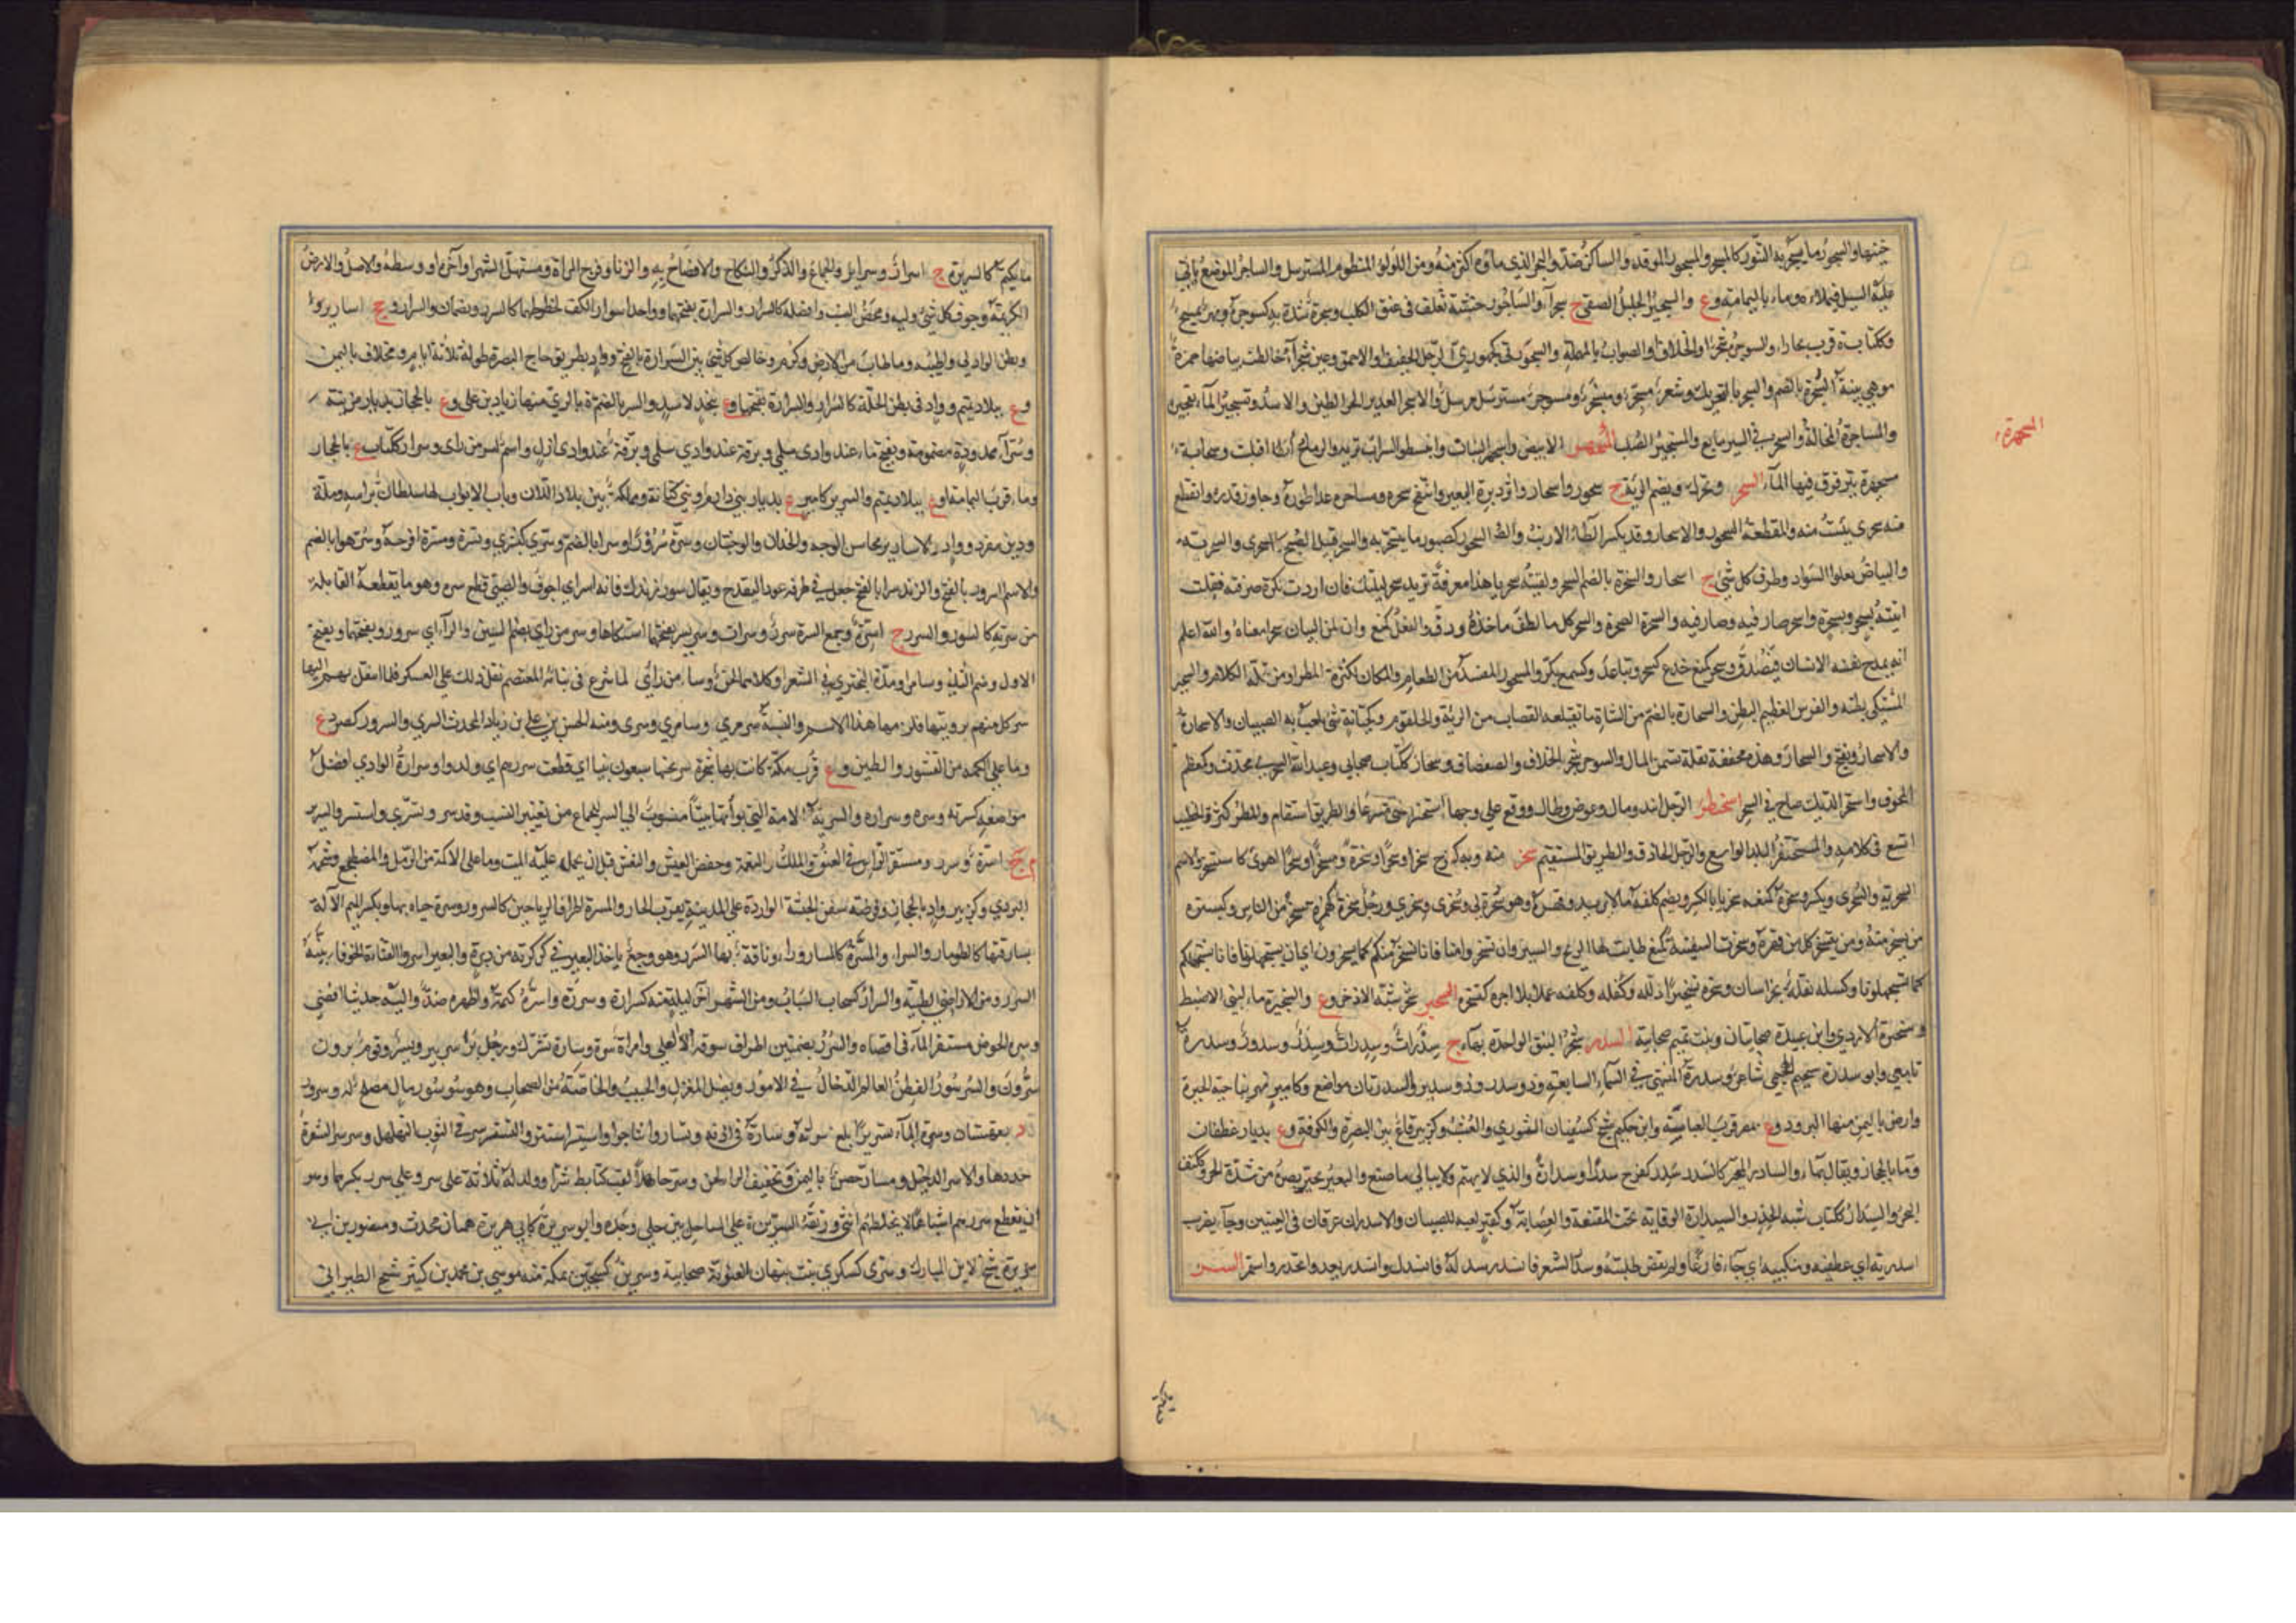 حنينها والسجور ما يسجر به التنور كالمسجر والمسجور الموقد والساكن ضد والبحر الذي ماؤه اكثر منه ومن اللؤلؤ المنظوم المسترسل والساجر الموضع ياتي
عليه السيل فيملاه وماء باليمامة وع والسجير الخليل الصفي ج سجراء والساجور خشبة تعلق في عنق الكلب وسجره شده به كسوجره
وككتاب ة قرب بخارا والسوجر شجر او الخلاف او الصواب بالمهملة والسجوري كجهوري الرجل الخفيف او الاحمق وعين سجراء خالطت بياضها حمرة
وهي بينة السجرة بالضم والسجر بالتحريك وشعر منسجر ومسجر ومسوجر مسترسل مرسل والاسجر الغدير الحر الطين والاسد وتسجير الماء تفجيره
والمساجرة المخالة وانسجر في السير تتابع والمسجئر الصلب المسجهر الابيض واسجهر النبات واسجهر السراب تريه والرماح اقبلت وسحابة
مسجهرة يترقرق فيها الماء السحر ويحرك ويضم الرئة ج سحور واسحار واثر دبرة البعير وانتفخ سحره ومساحره عدا طوره وجاوز قدره وانقطع
منه سحري يئست منه والمقطعة السحور والاسحار وقد يكسر الطاء الارنب وكصبور ما يتسحر به والسحر قبيل الصبح كالسحري والسحرية
والبياض يعلوا السواد وطرف كل شئ ج اسحار والسحرة بالضم السحر ولقيته سحر يا هذا معرفة تريد سحر ليلتك فان اردت نكرة صرفته فقلت
اتيته بسحر وبسحرة واسحر صار فيه وسار فيه والسحرة السحرة والسحر كل ما لطف ماخذه ودق والفعل كمنع وان من البيان سحرا معناه والله اعلم
انه يمدح الانسان فيصدق وسحر كمنع خدع كسحر وتباعد وكسمع بكر والمسحور المفسد من الطعام والمكان لكثرة المطر او من قلة الكلاء والسحير
المشتكي بطنه والفرس العظيم البطن والسحارة بالضم من الشاة ما يقتلعه القصاب من الرئة والحلقوم وكجبانة شئ يلعب به الصبيان والاسحارة
والاسحار ويفتح والسحار وهذه مخففة بقلة تسمن المال والسوحر شجر الخلاف والصفصاف وسحار ككتاب صحابي وعبد الله السحري محدث وكمعظم
المجوف واستحر الديك صاح في السحر اسحنطر الرجل امتد ومال وعرض وطال ووقع على وجهه استحنفر مضى مسرعا والطريق استقام والمطر كثر والخطيب
اتسع في كلامه والمسحنفر البلد الواسع والرجل الحاذق والطريق المستقيم سخر منه وبه كفرح سخرا وسخرا وسخرة ومسخرا وسخرا هزئ كاستسخر والاسم
السخرية والسخرى ويكسر وسخره كمنعه سخريا بالكسر ويضم كلفه ما لا يريد وقهره وهو سخرة لي وسخري وسخري ورجل سخرة كهمزة يسخر من الناس وكبسرة
من يسخر منه ومن يتسخر كل من قهره وسخرت السفينة كمنع طابت لها الريح والسير وان تسخروا منا فانا نسخر منكم كما تسخرون اي ان تستجهلونا فانا نستجهلكم
كما تستجهلونا وكسكر بقلة بخراسان وسخره تسخيرا ذلله وكلفه عملا بلا اجرة كتسخره السخبر شجر يشبه الاذخر وع والسخبرة ماء لبني الاضبط
وسخبرة الازدي وابن عبيدة صحابيان وبنت تميم صحابية السدر شجر النبق الواحدة بهاء ج سدرات وسدرات وسدر وسدر وسدور وسدرة
تابعي وابو سدرة سحيم الجهيمي شاعر وسدرة المنتهى في السماء السابعة وذو سدر وذو سدير والسدرتان مواضع وكامير نهر بناحية الحيرة
وارض باليمن منها البرود وع بمصر قرب العباسية وابن حكيم شيخ لسفيان الثوري والعشب وكزبير قاع بين البصرة والكوفة وع بديار غطفان
وماء بالحجاز ويقال بهاء والسادر المتحير كالسدر سدر كفرح سدرا وسدارة والذي لا يهتم ولا يبالي ما صنع والبعير تحير بصره من شدة الحر وككتف
البحر والسدار ككتاب شبه الخدر والسيدارة الوقاية تحت المقنعة والعصابة وكقبر لعبة للصبيان والاسدران عرقان في العينين وجاء يضرب
اسدريه اي عطفيه ومنكبيه اي جاء فارغا ولم يقض طلبته وسدر الشعر فانسدر سدله فانسدل وانسدر يعدو انحدر واستمر السر
السجهرة
ما يكتم كالسريرة ج اسرار وسرائر والجماع والذكر والنكاح والافصاح به والزنا وفرج المراة ومستهل الشهر او آخره او وسطه والاصل والارض
الكريمة وجوف كل شئ ولبه ومحض النسب وافضله كالسرار والسرارة بفتحهما وواحد اسرار الكف لخطوطها كالسرر ويضمان والسرار وج اسارير
وبطن الوادي واطيبه وما طاب من الارض وكرم وخالص كل شئ بين السرارة بالفتح وواد بطريق حاج البصرة طوله ثلاثة ايام ومخلاف باليمن
وع ببلاد تميم وواد في بطن الحلة كالسرار والسرارة بفتحهما وع بنجد لاسد والسر بالضم ة بالري منها زياد بن علي وع بالحجاز بديار مزينة
وسراء ممدودة مضمومة وتفتح ماء عند وادي سلمى وبرقة عند وادي ارل واسم لسر من راى وسرار ككتاب ع بالحجاز
وماء قرب اليمامة وع ببلاد تميم والسرير كامير ع بديار بني دارم او بني كنانة ومملكة بين بلاد اللان وباب الابواب لها سلطان براسه وملة
ودين مفرد وواد والاسارير محاسن الوجه والخدان والوجنتان وسره سرورا وسرا بالضم وسرى كبشرى وتسرة ومسرة افرحه وسر هو بالضم
والاسم السرور بالفتح والزند سرا بالفتح جعل في طرفه عودا ليقدح ويقال سر زندك فانه اسر اي اجوف والصبي قطع سره وهو ما تقطعه القابلة
من سرته كالسرر والسرر ج اسرة وجمع السرة سرر وسرات وسر يسر بفتحهما اشتكاها وسر من راى بضم السين والراء اي سرور وبفتحهما وبفتح
الاول وضم الثاني وسامرا ومده البحتري في الشعر او كلاهما لحن وساء من راى لما شرع في بنائه المعتصم ثقل ذلك على العسكر فلما انتقل بهم اليها
سر كل منهم برويتها فلزمها هذا الاسم والنسبة سرمري وسامري وسري ومنه الحسن بن علي بن زياد المحدث السري والسرر كصرد ع
وما على الكمأة من القشور والطين وع قرب مكة كانت بها شجرة سر عنها سبعون نبيا اي قطعت سررهم اي ولدوا وسرارة الوادي افضل
مواضعه كسرته وسره وسراره والسرية الامة التي بواتها بيتا منسوبة الى السر للجماع من تغيير النسب وقد تسرر وتسرى واستسر والسرير
م ج اسرة وسرر ومستقر الراس في العنق والملك والنعمة وخفض العيش والنعش قبل ان يحمل عليه الميت وما على الاكمة من الرمل والمضطجع وشحمة
البردي وكزبير واد بالحجاز وفرضة سفن الحبشة الواردة على المدينة بقرب الجار والمسرة اطراف الرياحين كالسرور وسره حياه بها وبكسر الميم الآلة
يسار فيها كالطومار والسراء والمسرة كالسارورا وناقة بها السرر وهو وجع ياخذ البعير في كركرته من دبرة والبعير اسر والقناة الجوفاء بينة
السرر ومن الاراضي الطيبة والسرار كسحاب السياب ومن الشهر آخر ليلة منه كسراره وسرره واسره كتمه واظهره ضد واليه حديثا افضى
وسرة الحوض مستقر الماء في اقصاه والسرر بضمتين اطراف سوقه الاعلى وامراة سرة وسارة تسرك ورجل بر سر يبر ويسر وقوم برون
سرون والسرسور الفطن العالم الدخال في الامور ونصل المغزل والحبيب والخاصة من الصحاب وهو سرسور مال مصلح له وسرور
د بقهستان وسره الماء تسريرا بلغ سرته وساره في اذنه وتساروا تناجوا واستسر استتر والتسرر في الثوب التهلهل وسرسر الشفرة
حددها والاسر الدخيل ومسار حصن باليمن وتخفيف الراء لحن وسر جاهلا لقب كتابط شرا وولد له ثلاثة على سر وعلى سرر بكسرهما وهو
ان تقطع سررهم اشباها لا تخلطهم انثى ورتقة السرين ة على الساحل بين حلي وجدة وابو سريرة كابي هريرة هميان محدث ومنصور بن ابي
سريرة شيخ لابن المبارك وسرى كسكرى بنت نبهان الغنوية صحابية وسرين كسجين ع بمكة منه موسى بن محمد بن كثير شيخ الطبراني